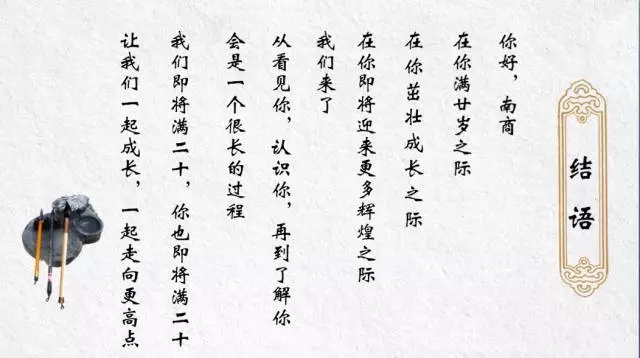 结语
你好，南商
在你满廿岁之际
在你茁壮成长之际
在你即将迎来更多辉煌之际
我们来了
从看见你，认识你，再到了解你
会是一个很长的过程
我们即将满二十，你也即将满二十
让我们一起成长，一起走向更高点